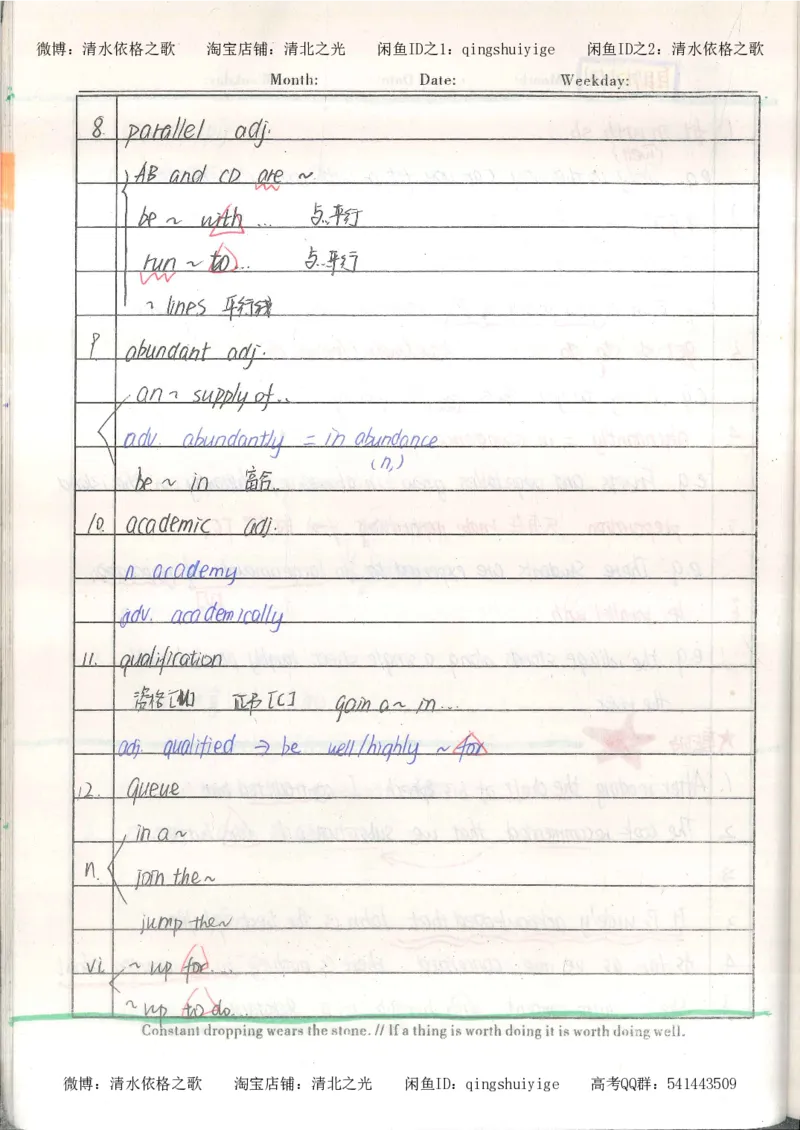 微博：清水依格之歌 淘宝店铺：清北之光 闲鱼ID之1：qingshuiyige 闲鱼ID之2：清水依格之歌
Month: Date: Weekday:
8. parallel adj.
AB and CD are ~
be ~ with ... 与..平行
run ~ to ... 与..平行
~ lines 平行线
9 abundant adj.
an ~ supply of ..
adv. abundantly = in abundance
(n.)
be ~ in 富含..
10. academic adj.
n. academy
adv. academically
11. qualification
资格[U] 证书[C] gain a ~ in ...
adj. qualified → be well/highly ~ for
12. queue
in a ~
n. join the ~
jump the ~
vi. ~ up for ...
~ up to do ...
Constant dropping wears the stone. // If a thing is worth doing it is worth doing well.
微博：清水依格之歌 淘宝店铺：清北之光 闲鱼ID：qingshuiyige 高考QQ群：541443509